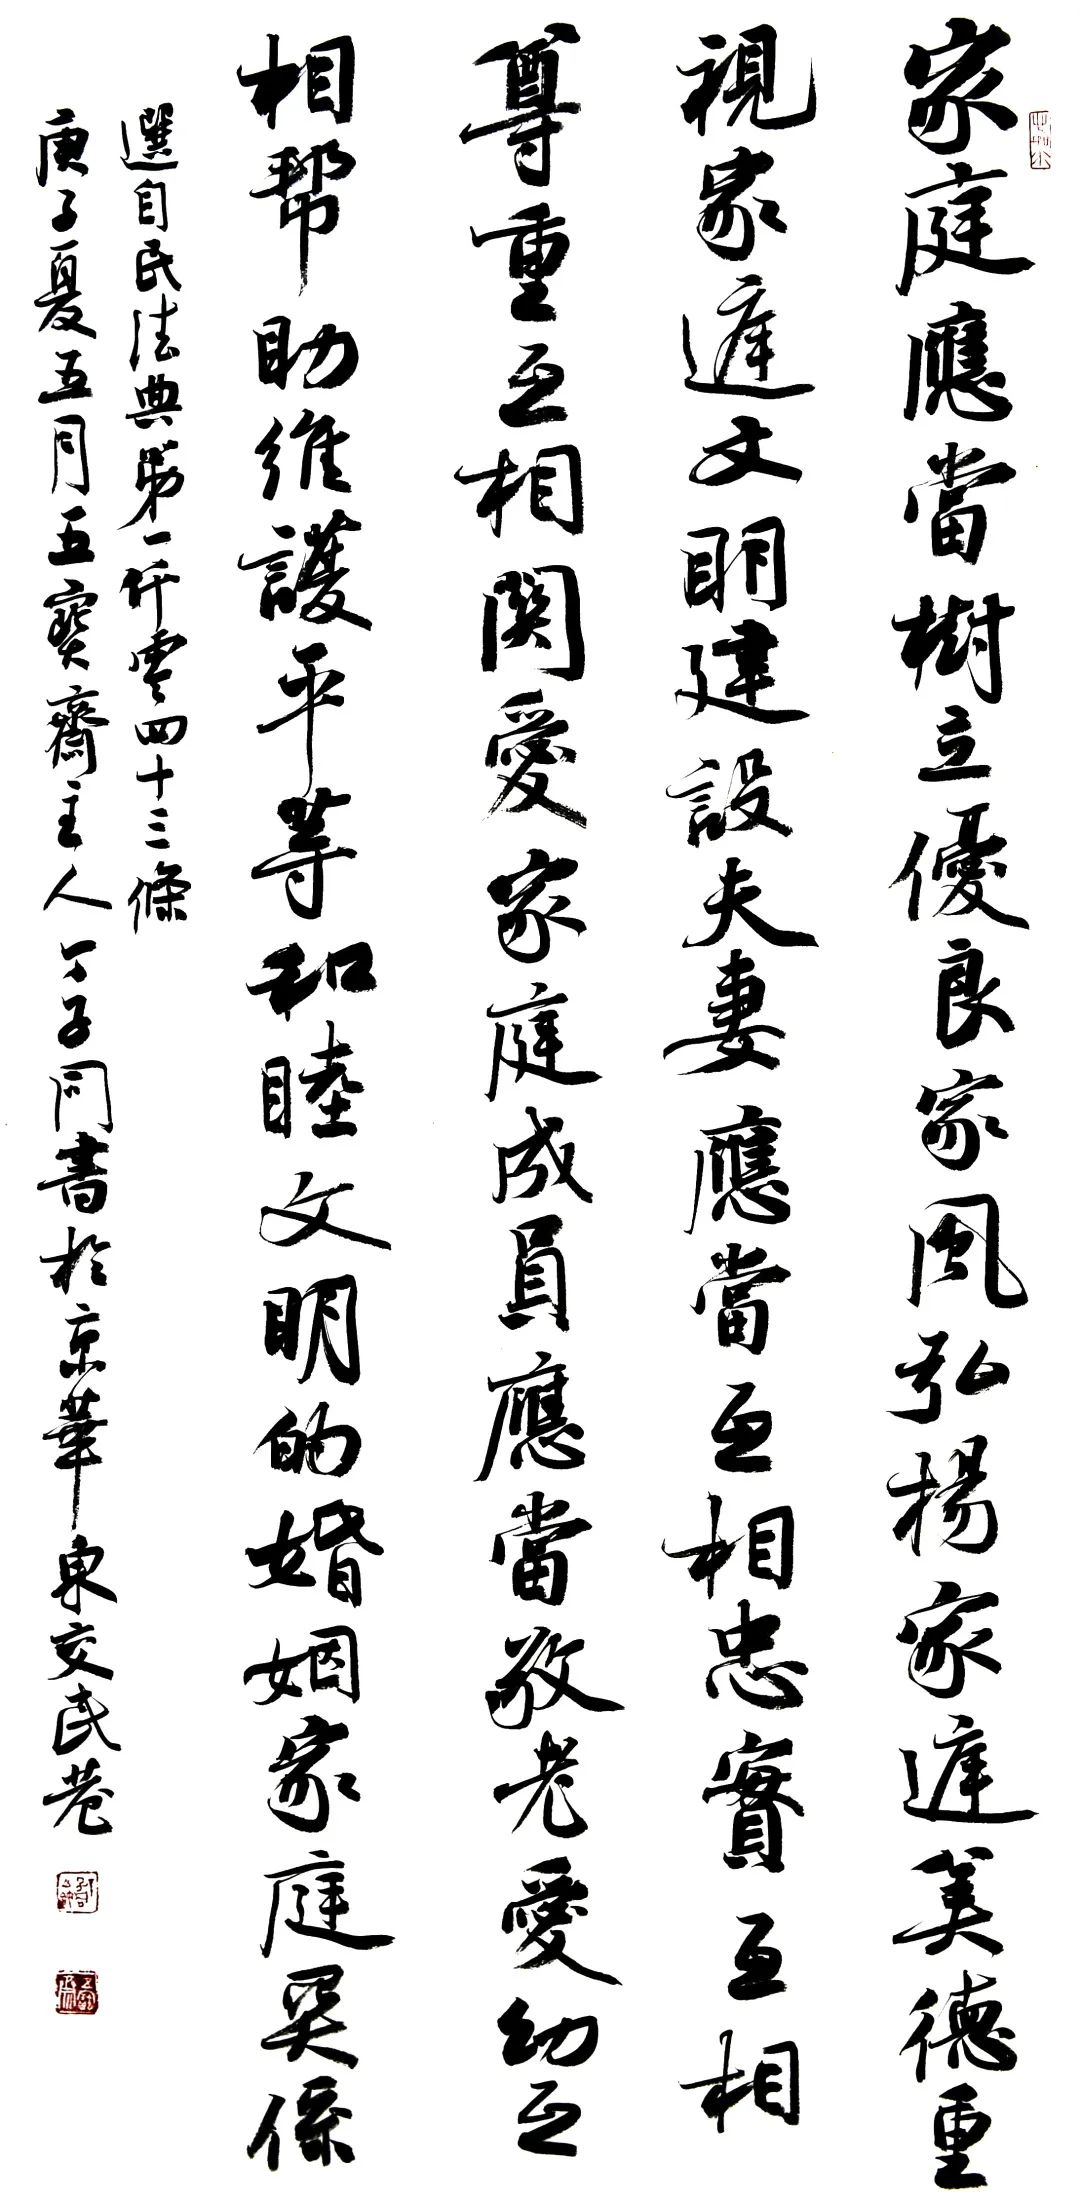 家庭應當樹立優良家風弘揚家庭美德重
視家庭文明建設夫妻應當互相忠實互相
尊重互相関愛家庭成員應當敬老愛幼互
相帮助維護平等和睦文明的婚姻家庭関係
選自民法典第一仟零四十三條
庚子夏五月五寶齋主人丁子同書於京華東交民巷